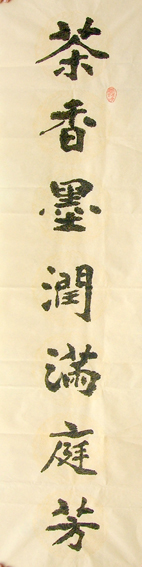 茶香墨潤滿庭芳